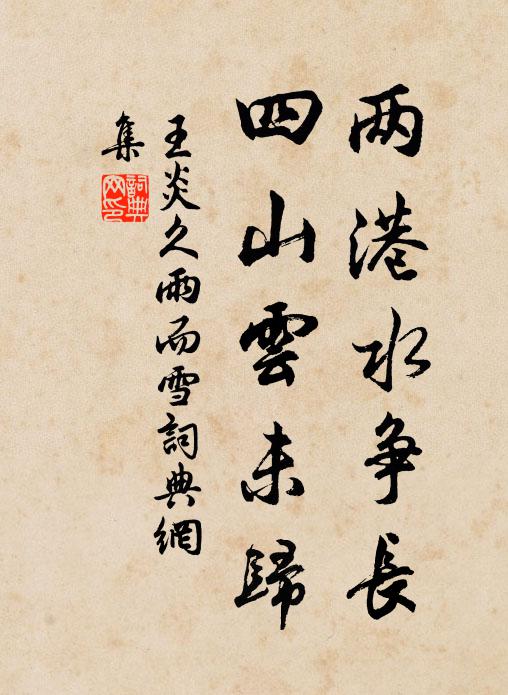 两港水争長
四山雲未歸
王炎久雨而雪詞典網
集
詞典
网印